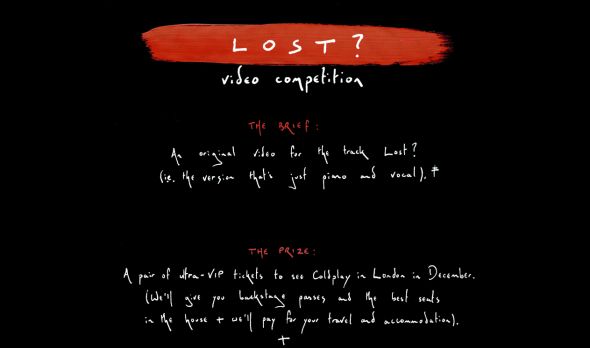 LOST?
video competition
THE BRIEF:
An original video for the track Lost?
(ie. the version that's just piano and vocal).‡
THE PRIZE:
A pair of ultra-VIP tickets to see Coldplay in London in December.
(We'll give you backstage passes and the best seats
in the house + we'll pay for your travel and accommodation).
+